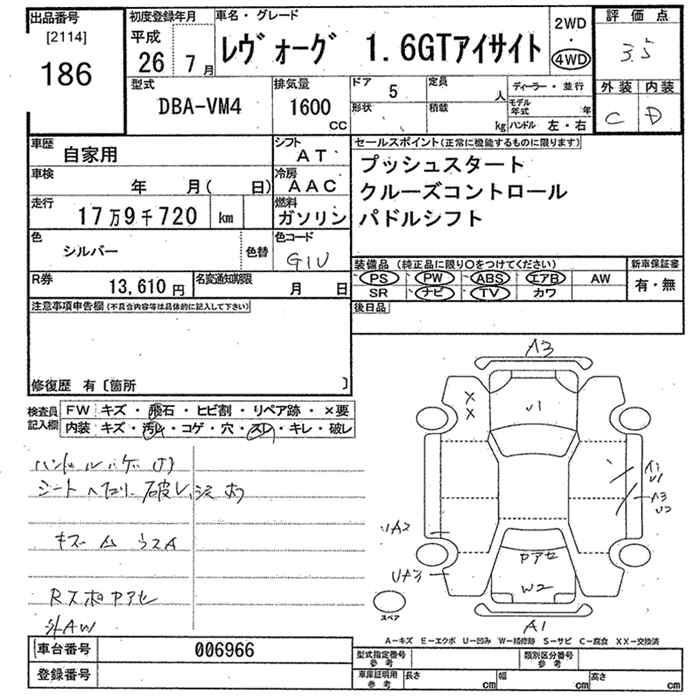 出品番号 初度登録年月 車名・グレード 2WD 評価点
[2114] 平成 レヴォーグ 1.6GTアイサイト ・ 3.5
186 26年 7月 4WD
型式 排気量 ドア 5 定員 人 ディーラー・並行 外装 内装
DBA-VM4 1600 CC 形状 積載 kg モデル年式 年 C D
ハンドル 左・右
車歴 自家用 シフト AT セールスポイント(正常に機能するものに限ります)
車検 年 月( 日) 冷房 AAC プッシュスタート
走行 17万9千720 km 燃料 ガソリン クルーズコントロール
パドルシフト
色 シルバー 色替 色コード G1U
装備品(純正品に限り〇をつけてください) 新車保証書
R券 13,610円 名変通知期限 月 日 PS PW ABS エアB AW 有・無
SR ナビ TV カワ
注意事項申告欄(不具合内容等は具体的に記入して下さい) 後日品
修復歴 有〔箇所 〕
検査員記入欄 FW キズ・飛石・ヒビ割・リペア跡・×要
内装 キズ・汚れ・コゲ・穴・スレ・キレ・破レ
A3
U1
A1
U1
A3
U2
UA2
Pアセ
W2
A1
ハンドル
シート
キズ ム ウスA
Pアセ
外AW
スペア
A-キズ E-エクボ U-凹み W-補修跡 S-サビ C-腐食 XX-交換済
車台番号 006966 型式指定番号 参考 類別区分番号 参考
登録番号 車庫証明用 参考 長さ cm 幅 cm 高さ cm